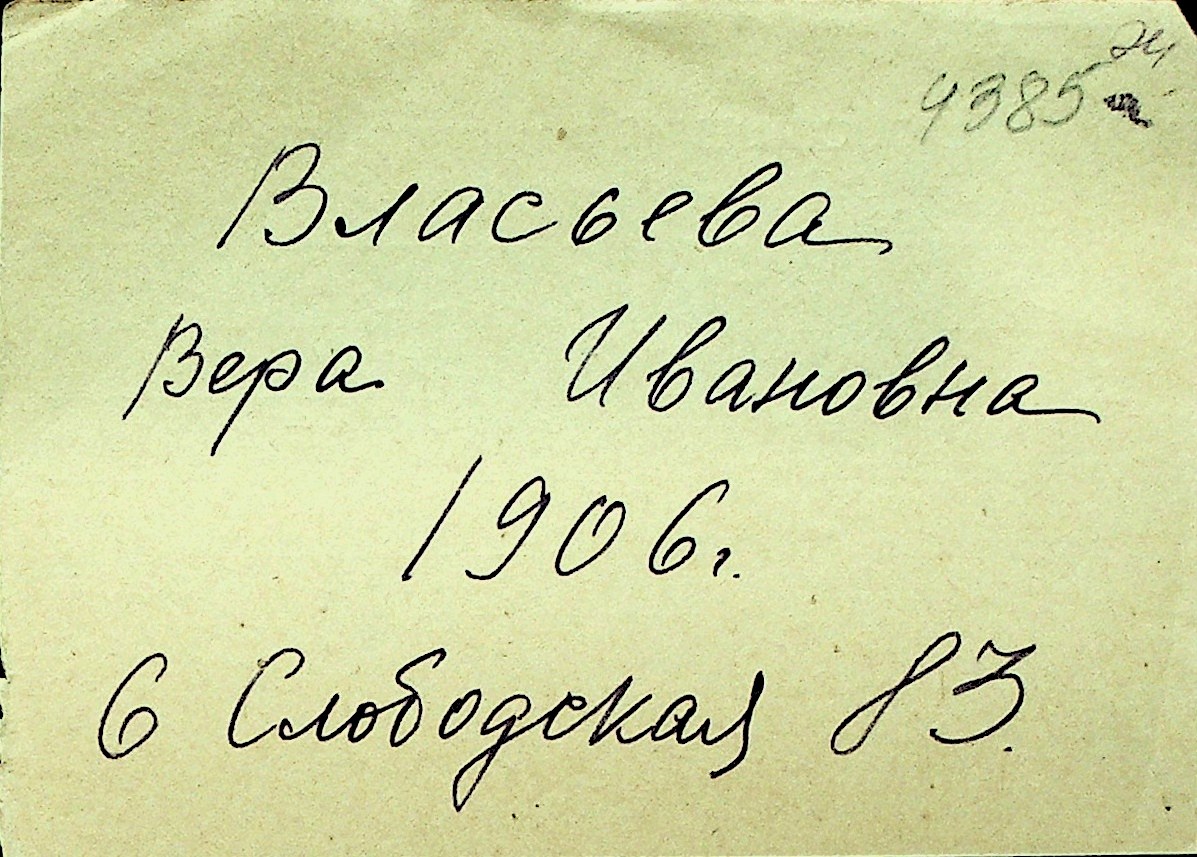 24
4385
Власьева
Вера Ивановна
1906г.
6 Слободская 83.